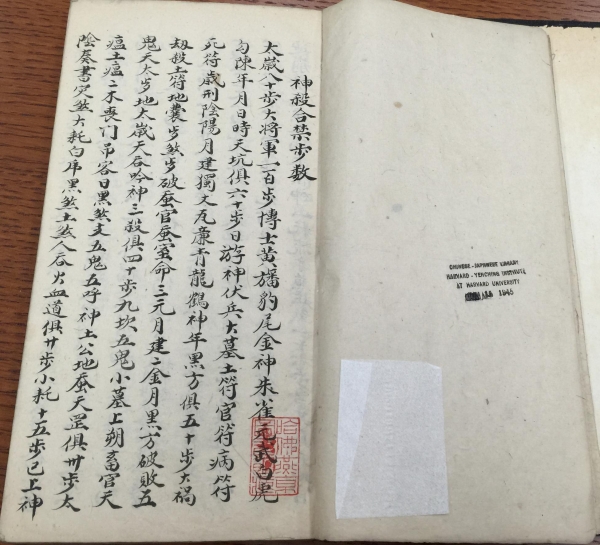 神殺合禁步數
太歲八十步大將軍一百步博士黃旛豹尾金神朱雀元武白虎
勾陳年月日時天坑俱六十步日游神伏兵大墓土符官符病符
死符歲刑陰陽月建獨火瓦廉青龍鶴神年黑方俱五十步大禍
刼殺土符地囊步煞步破蚕官蚕室命三元月建二金月黑方破敗五
鬼天太步地太歲天吞吟神三殺俱四十步九坎五鬼小墓上朔畜官天
瘟土瘟二木喪门吊客日黑煞支五鬼五呼神土公地蚕天罡俱卅步太
陰奏書災煞大耗白虎黑煞土煞人吞火血道俱廿步小耗十五步已上神
CHINESE-JAPANESE LIBRARY
HARVARD-YENCHING INSTITUTE
AT HARVARD UNIVERSITY
1945